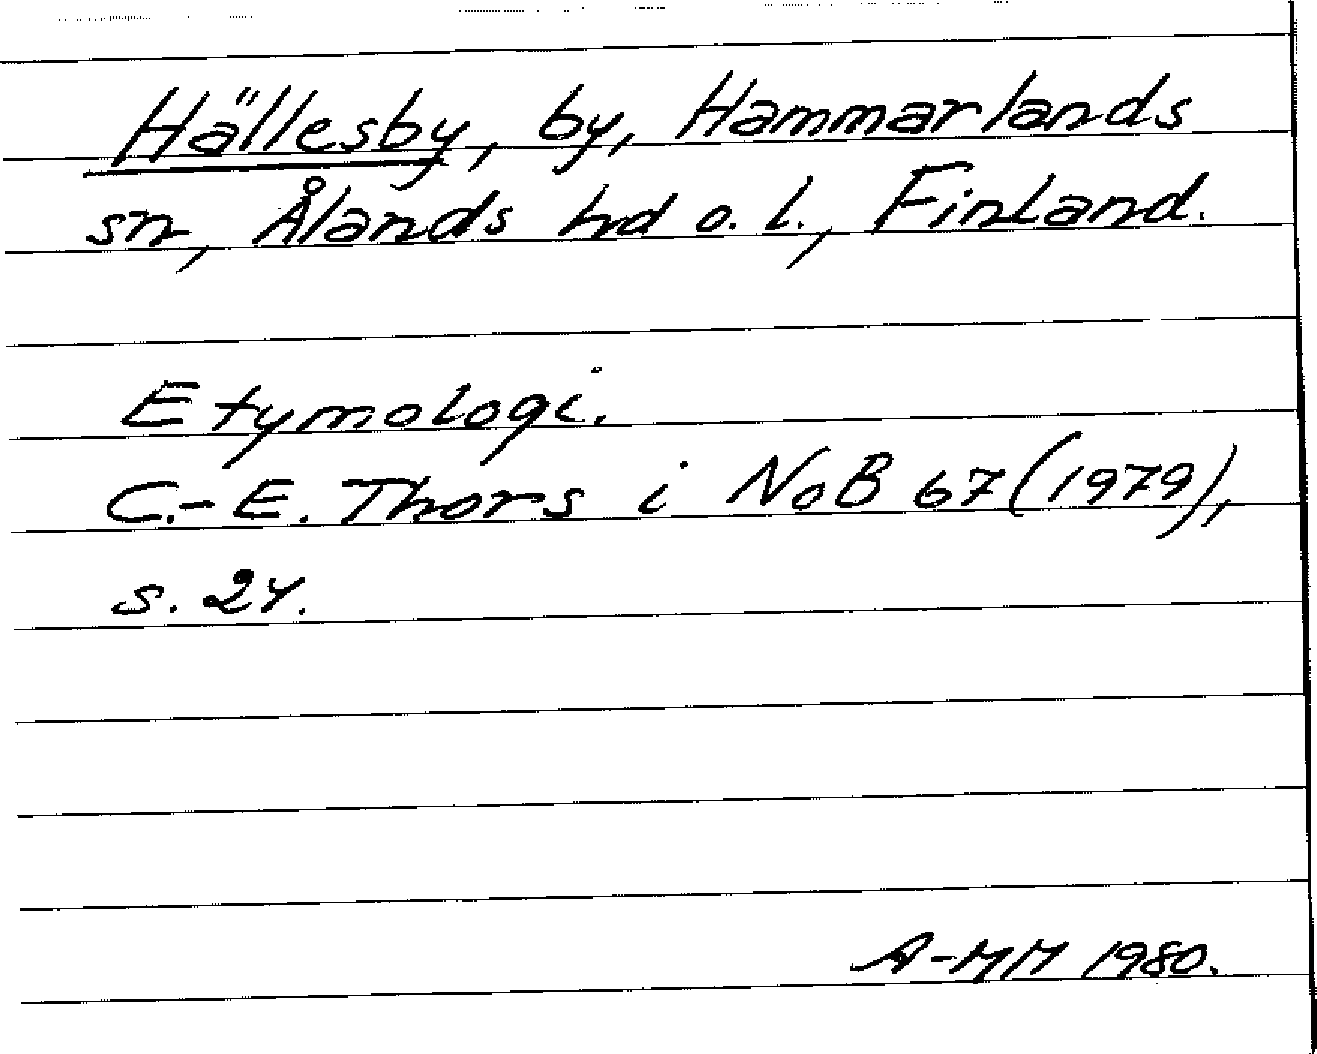 Hällesby, by, Hammarlands
sn, Ålands hd o. l., Finland.
Etymologi.
C.-E. Thors i NoB 67 (1979),
s. 24.
A-MM 1980.